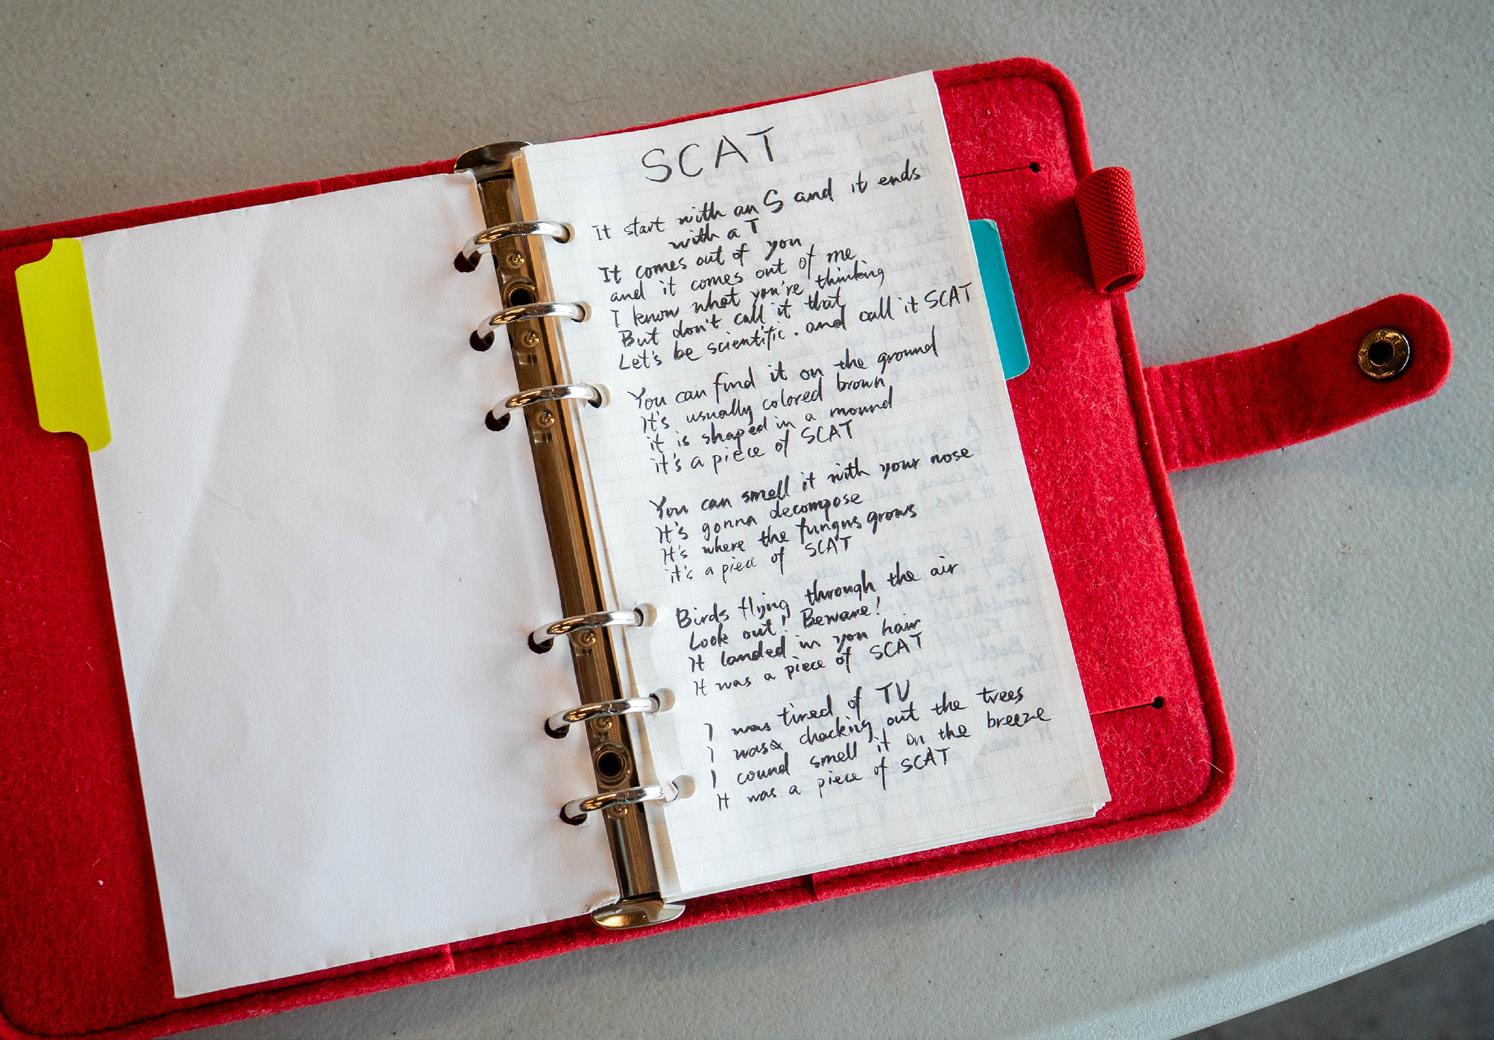 SCAT
It start with an S and it ends
with a T
It comes out of you
and it comes out of me
I know what you're thinking
But don't call it that
Let's be scientific. and call it SCAT
You can find it on the ground
It's usually colored brown
it is shaped in a mound
it's a piece of SCAT
You can smell it with your nose
It's gonna decompose
It's where the fungus grows
it's a piece of SCAT
Birds flying through the air
Look out! Beware!
It landed in you hair
It was a piece of SCAT
I was tired of TV
I was chacking out the trees
I cound smell it on the breeze
It was a piece of SCAT